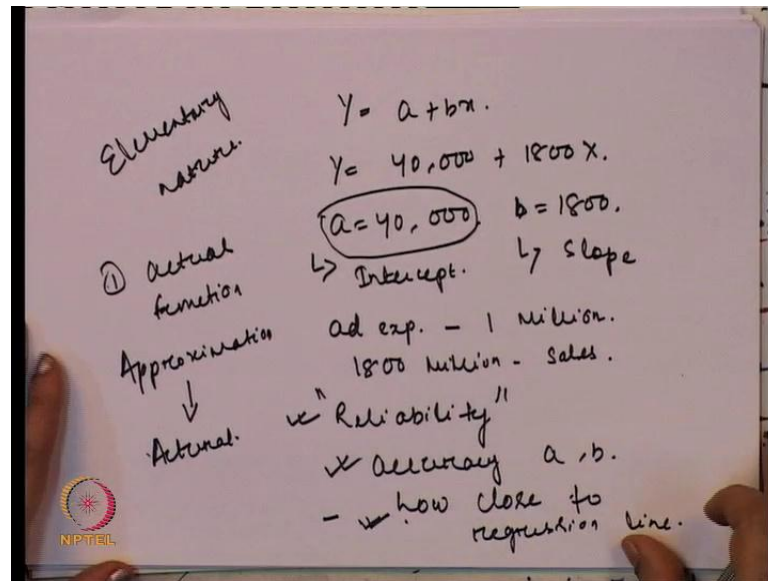 Elementary
nature.
① actual
function
Approximation
↓
Actual.
Y = a + bx.
Y = 40,000 + 1800 X.
a = 40,000. b = 1800.
↳ Intercept. ↳ Slope
ad exp. - 1 Million.
1800 Million - Sales.
"Reliability"
accuracy a, b.
- how close to
regression line.
NPTEL